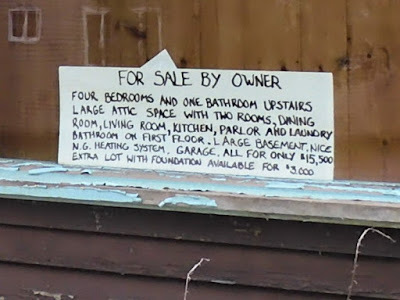 FOR SALE BY OWNER
FOUR BEDROOMS AND ONE BATHROOM UPSTAIRS
LARGE ATTIC SPACE WITH TWO ROOMS, DINING
ROOM, LIVING ROOM, KITCHEN, PARLOR AND LAUNDRY
BATHROOM ON FIRST FLOOR. LARGE BASEMENT, NICE
N.G. HEATING SYSTEM. GARAGE, ALL FOR ONLY $15,500
EXTRA LOT WITH FOUNDATION AVAILABLE FOR $3,000